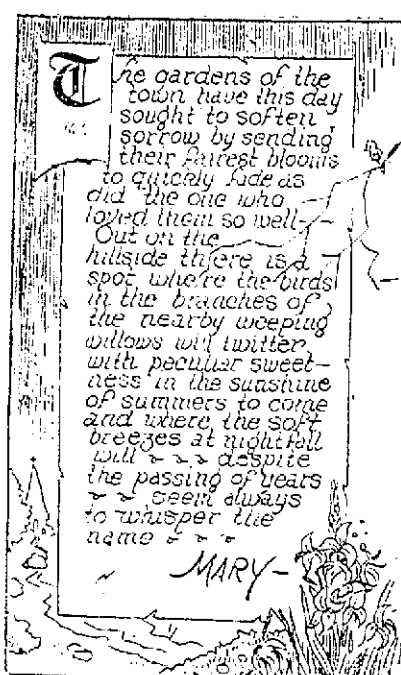 The gardens of the
town have this day
sought to soften
sorrow by sending
their fairest blooms
to quickly fade as
did the one who
loved them so well—
Out on the
hillside there is a
spot where the birds
in the branches of
the nearby weeping
willows will twitter
with peculiar sweet-
ness in the sunshine
of summers to come
and where the soft
breezes at nightfall
will ~ ~ ~ despite
the passing of years
~ ~ seem always
to whisper the
name ~ ~ ~
MARY—